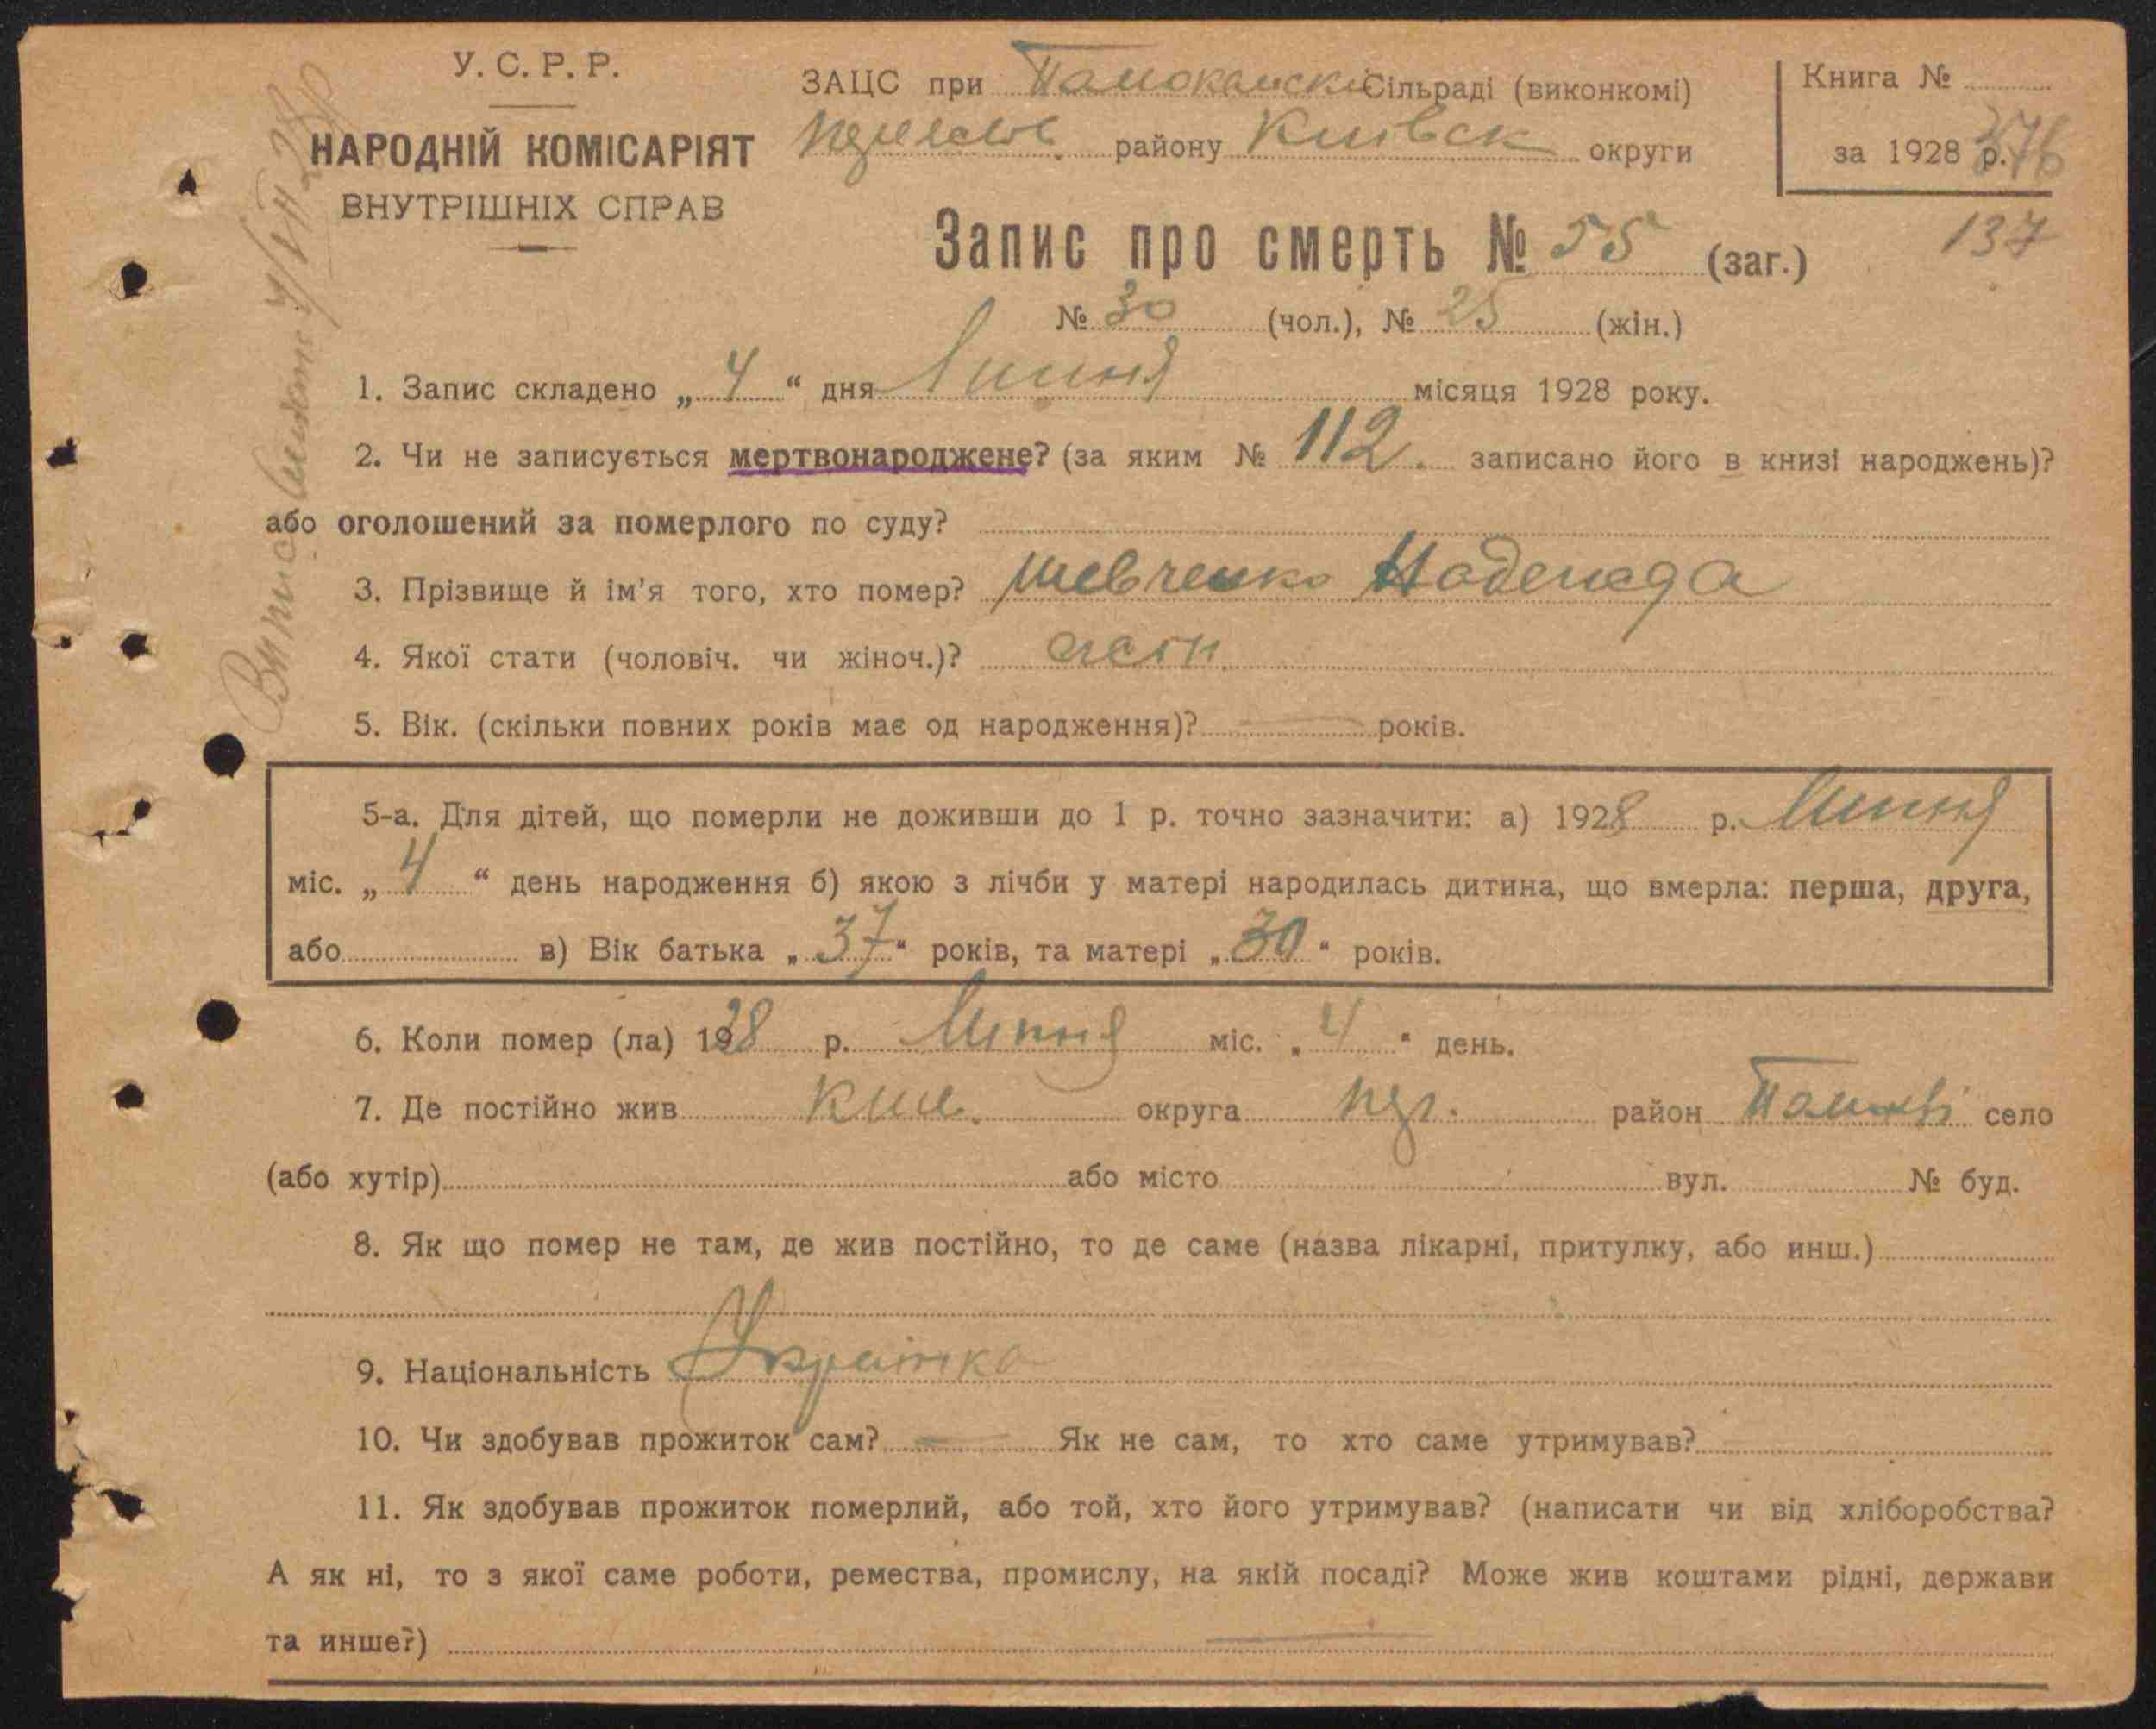 У. С. Р. Р.
НАРОДНІЙ КОМІСАРІЯТ
ВНУТРІШНІХ СПРАВ
ЗАЦС при Сільраді (виконкомі)
району Київск округи
Книга №
за 1928 р. 376
137
Запис про смерть № 55 (заг.)
№ 30 (чол.), № 25 (жін.)
1. Запис складено „ 4 “ дня Липня місяця 1928 року.
2. Чи не записується мертвонароджене? (за яким № 112. записано його в книзі народжень)?
або оголошений за померлого по суду?
3. Прізвище й ім'я того, хто помер? Шевченко Надежда
4. Якої стати (чоловіч. чи жіноч.)? жін.
5. Вік. (скільки повних років має од народження)? — років.
5-а. Для дітей, що померли не доживши до 1 р. точно зазначити: а) 1928 р. Липня
міс. „ 4 “ день народження б) якою з лічби у матері народилась дитина, що вмерла: перша, друга,
або в) Вік батька „ 37 “ років, та матері „ 30 “ років.
6. Коли помер (ла) 1928 р. Липня міс. „ 4 “ день.
7. Де постійно жив округа район село
(або хутір) або місто вул. № буд.
8. Як що помер не там, де жив постійно, то де саме (назва лікарні, притулку, або инш.)
9. Національність
10. Чи здобував прожиток сам? — Як не сам, то хто саме утримував?
11. Як здобував прожиток померлий, або той, хто його утримував? (написати чи від хліборобства?
А як ні, то з якої саме роботи, ремества, промислу, на якій посаді? Може жив коштами рідні, держави
та инше?) —